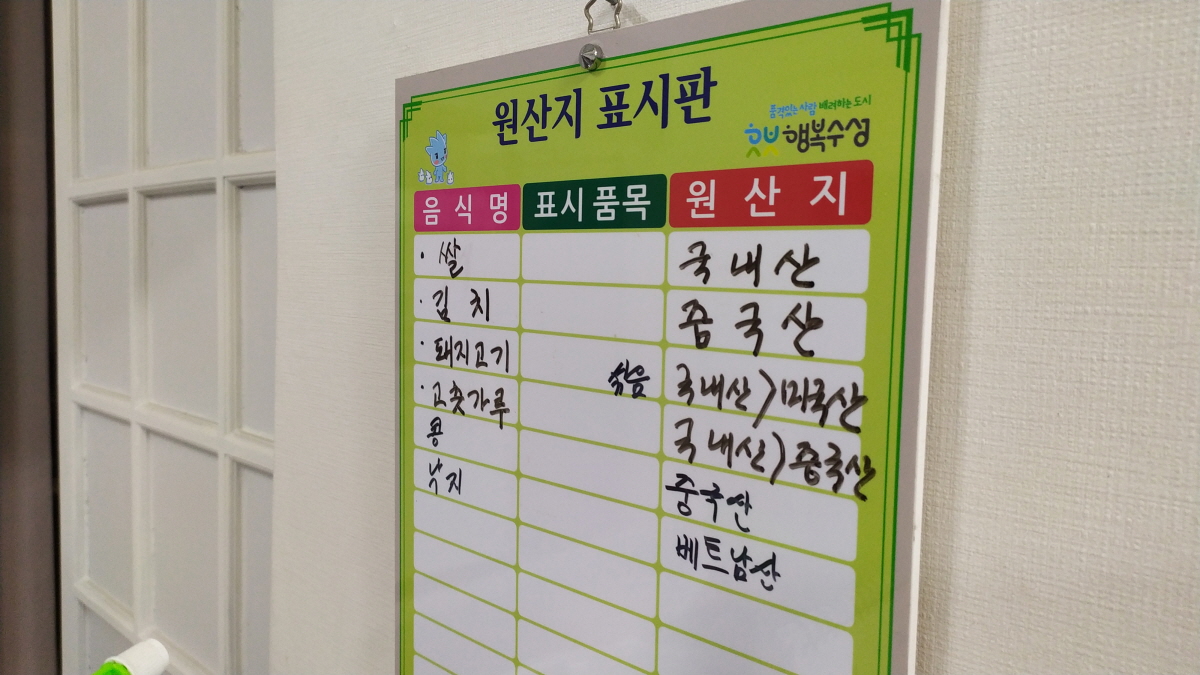 원산지 표시판
품격있는 사람 배려하는 도시
행복수성
음식명 표시 품목 원산지
· 쌀 국내산
· 김치 중국산
· 돼지고기 섞음 국내산 > 미국산
· 고춧가루 국내산 > 중국산
콩 중국산
낙지 베트남산